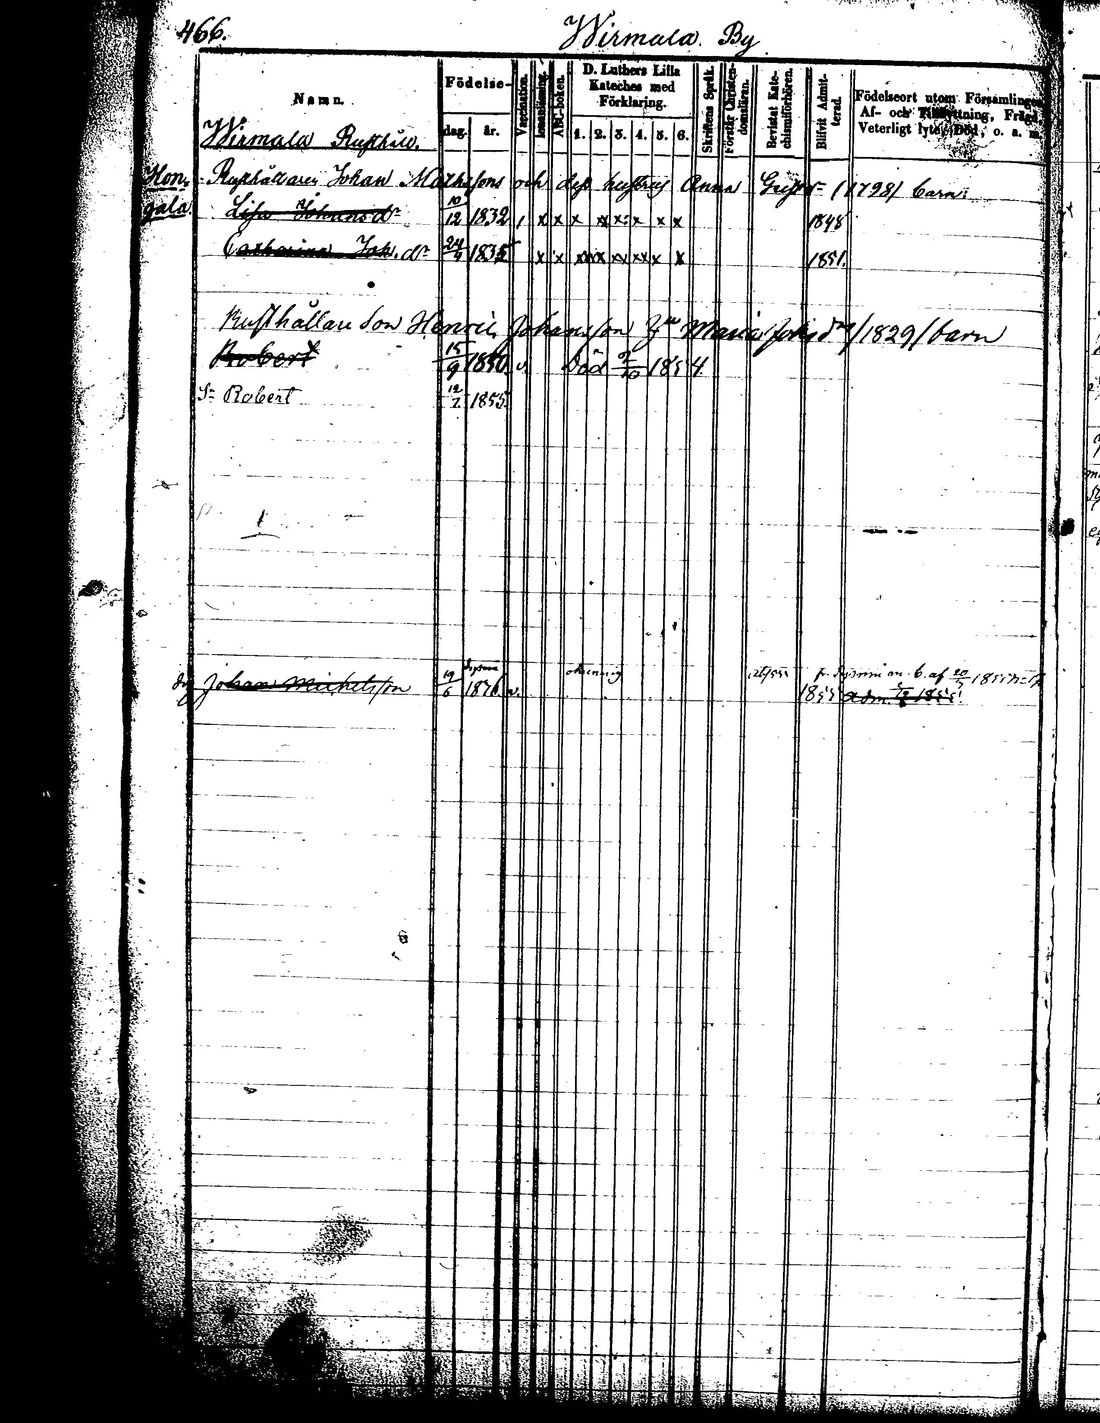 466. Wirmala By
Namn. Födelse- dag. år. Vaccination. Innanläsning. ABC-boken. D. Luthers Lilla Kateches med Förklaring. 1. 2. 3. 4. 5. 6. Skriftens Språk. Förstår Christendomsläran. Bevistat Katechismiförhören. Blifvit Admitterad. Födelseort utom Församlingen, Af- och Tillflyttning, Frägd, Veterligt lyte, Död, o. a. m.
Wirmala Rusthåll.
Hongala Rusthållaren Johan Mathssons och dess hustrus Anna Greta dr (1798) barn:
Lisa Johans dr 10/12 1832 x x x x x x x x 1848
Catharina Joh. dr 24/4 1835 x x x x x x x x 1851.
Rusthållare Son Henric Johansson Maria Johsdr /1829/ barn
Robert 15/9 1850. v. Död 2/10 1854.
Sn Robert 12/7 1855.
Johan Michelsson 19/6 v. 1855